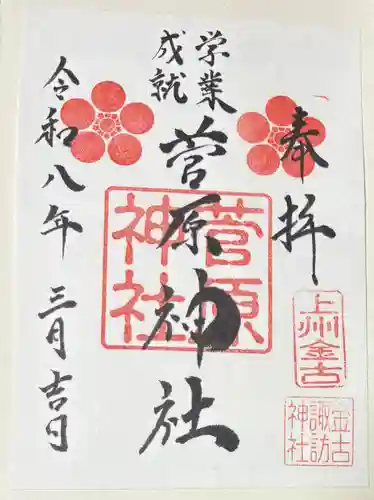 奉拝
学業
成就
菅原神社
令和八年 三月吉日
菅原
神社
上州金古
金古
諏訪
神社